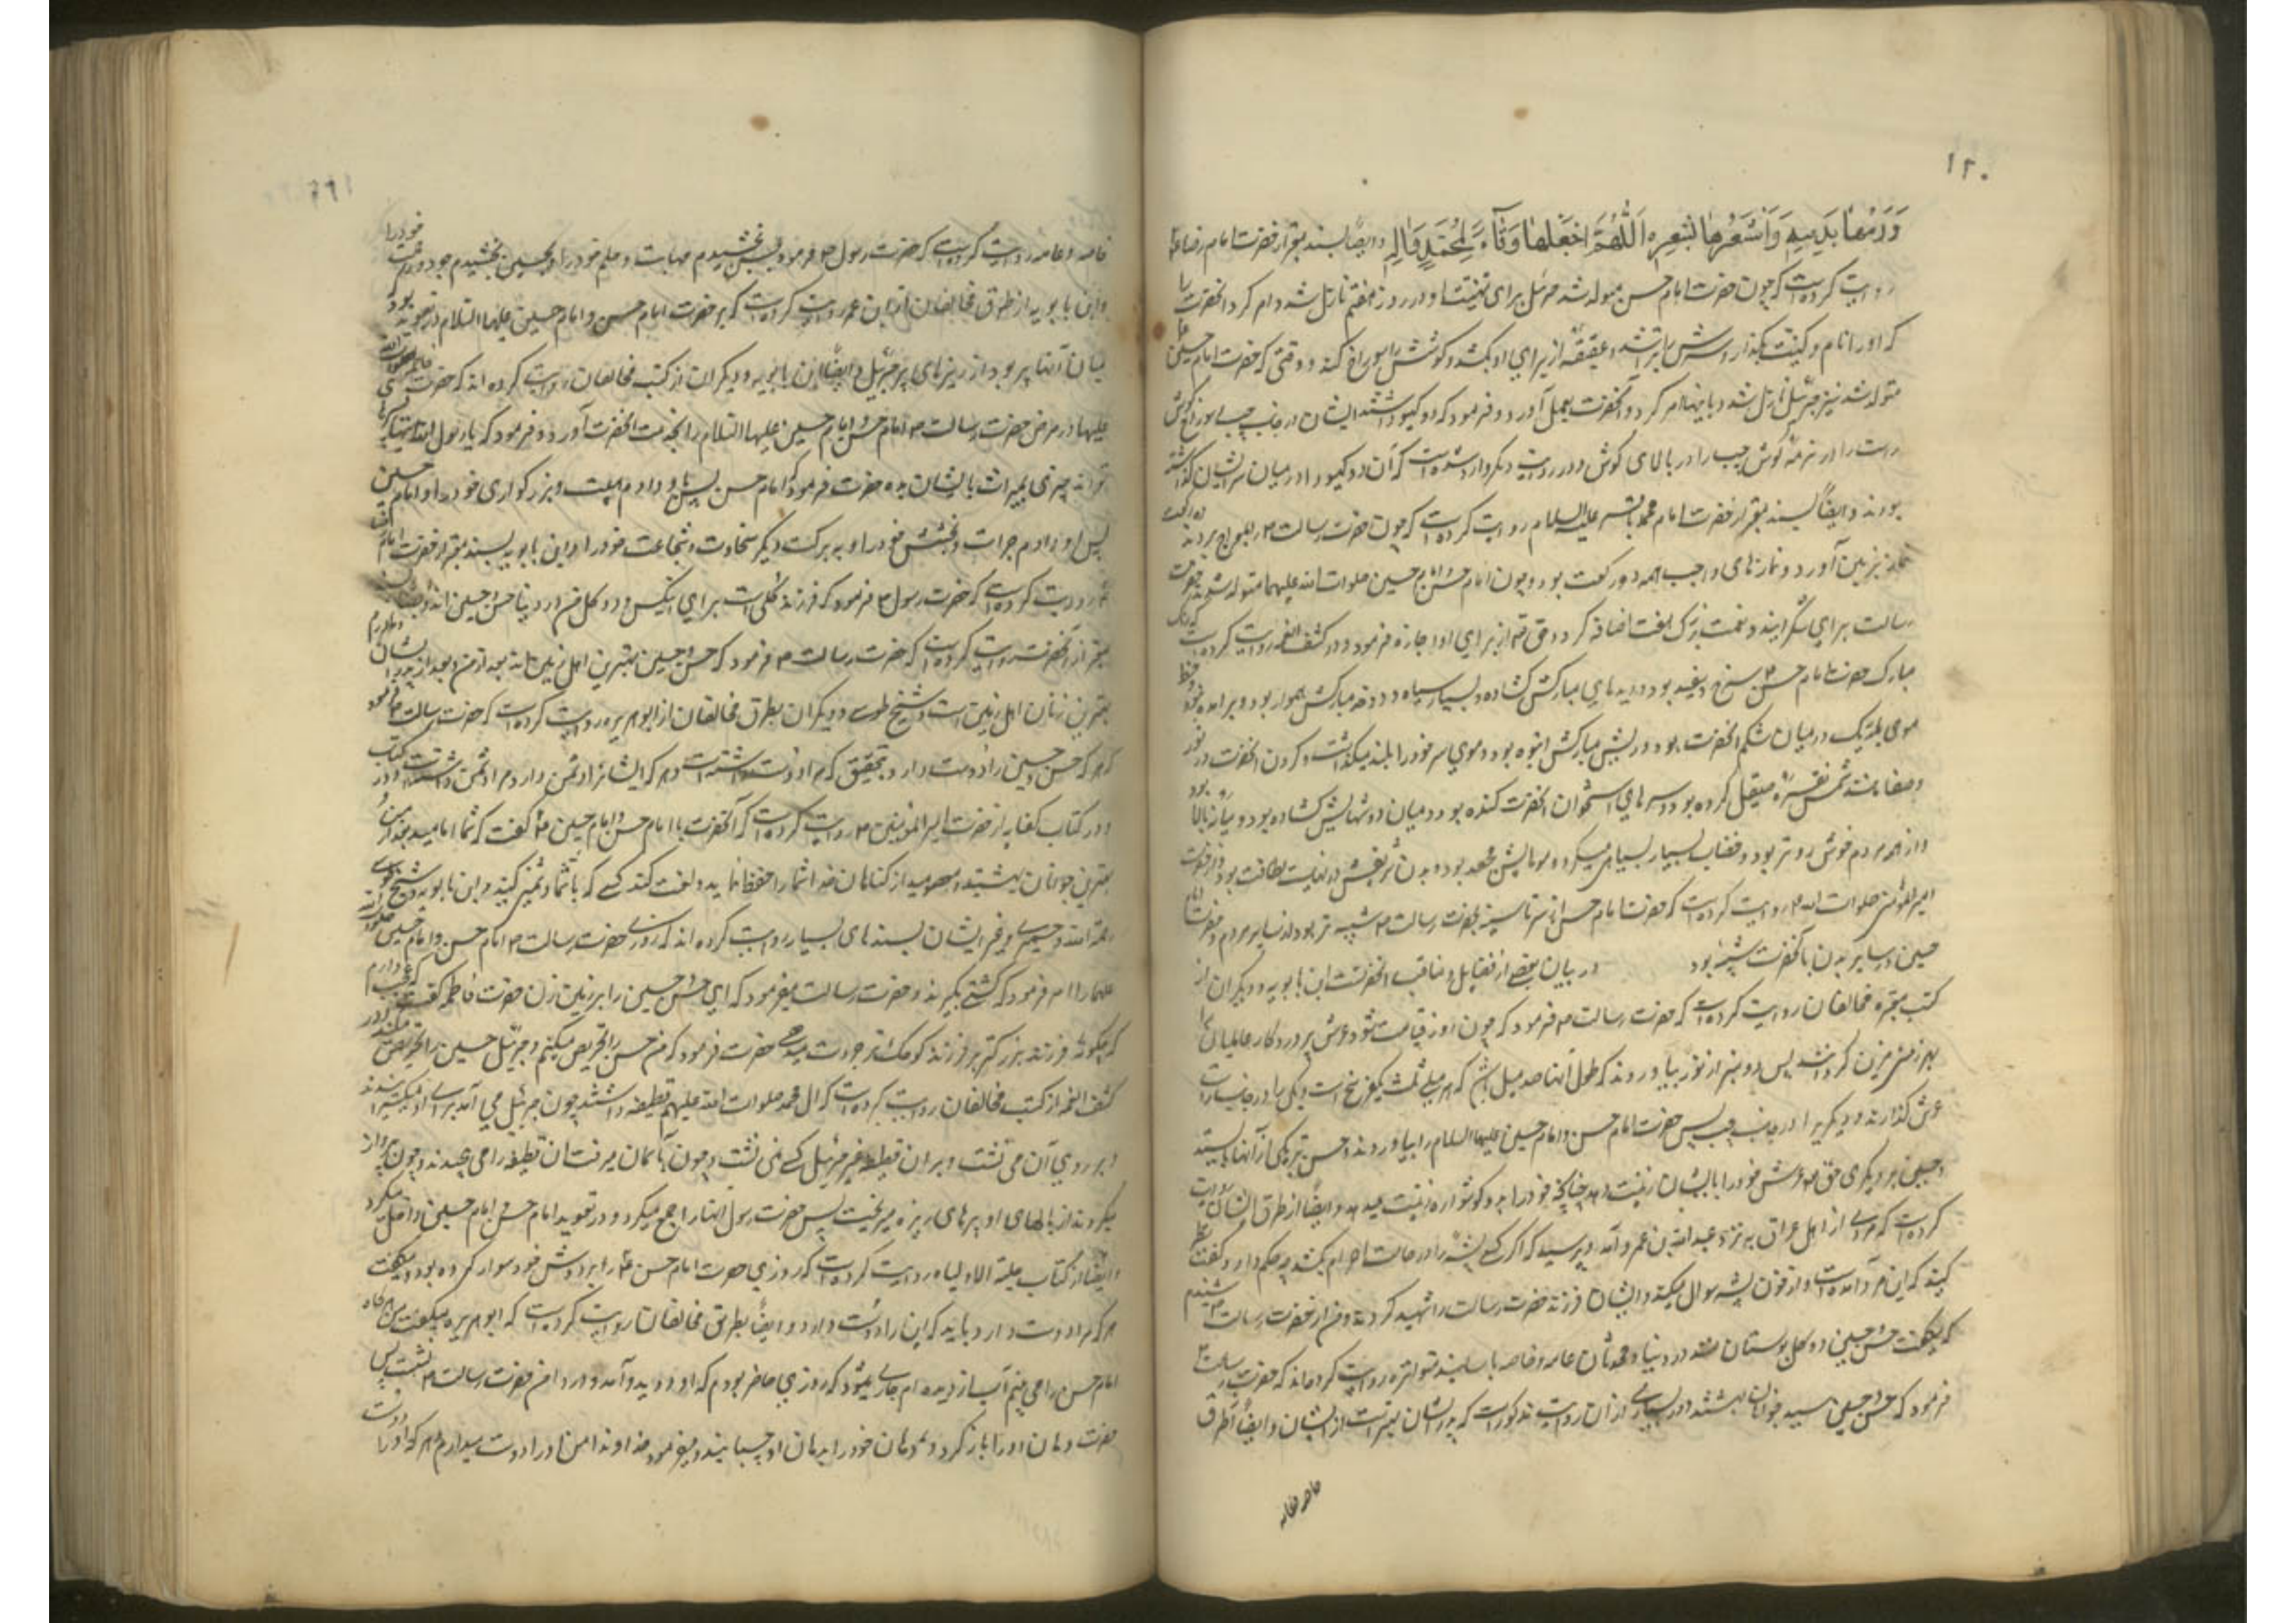 ۱۲۰
وَدَمُهَا بِدَمِهِ وَاَشْعَرُهَا بِشَعْرِهِ اَللّٰهُمَّ اجْعَلْهَا وِقَآءً لِمُحَمَّدٍ وَاٰلِهِ وایضا بسند معتبر از حضرت امام رضا
روایت کرده است که چون حضرت امام حسن متولد شد جبرئیل برای تهنیت او در روز هفتم نازل شد و امر کرد آنحضرت را
که او را نام و کنیت بگذارد و سرش را بتراشد و عقیقه از برای او بکشد و گوشش را سوراخ کند و در وقتی که حضرت امام حسین
متولد شد نیز جبرئیل نازل شد و باینها امر کرد و آنحضرت بعمل آورد و فرمود که دو گیسو داشتند ایشان در جانب چپ سر و گوش
راست را در نرمهٔ گوش چپ را در بالای گوش و در روایت دیگر وارد شده است که آن دو گیسو را در میان سر ایشان گذاشته
بودند و ایضا بسند معتبر از حضرت امام محمد باقر علیه السلام روایت کرده است که چون حضرت رسالت را بمعراج بردند ده رکعت
نماز بزمین آورد و نمازهای واجب همه دو رکعت بود و چون امام حسن و امام حسین صلوات الله علیهما متولد شدند حضرت
رسالت برای شکر این دو نعمت بزرگ هفت رکعت اضافه کرد و حق تعالی از برای او اجازه فرمود و در کشف الغمه روایت کرده است که رنگ
مبارک حضرت امام حسن سرخ و سفید بود و دیده‌های مبارکش گشاده و بسیار سیاه و دو خد مبارکش هموار بود و برآمده نبود و خط
موی باریک در میان شکم آنحضرت بود و ریش مبارکش انبوه بود و موی سر خود را بلند میگذاشت و گردن آنحضرت در نور
و صفا مانند شمش نقره صیقل کرده بود و سرهای استخوان آنحضرت گنده بود و میان دوشهایش گشاده بود و میانه بالا بود
و از همه مردم خوش روتر بود و خضاب بسیاهی میکرد و موهایش مجعد بود و بدن شریفش در نهایت لطافت بود و از حضرت
امیر المؤمنین صلوات الله علیه روایت کرده است که حضرت امام حسن از سر تا سینه بحضرت رسالت شبیه‌تر بود از سایر مردم و حضرت امام
حسین در سایر بدن بآنحضرت شبیه بود در بیان بعضی از فضایل و مناقب آنحضرتست ابن بابویه و دیگران از
کتب معتبره مخالفان روایت کرده است که حضرت رسالت فرمود که چون روز قیامت شود عرش پروردگار عالمیان را
بهر زینتی مزین گردانند پس دو منبر از نور بیاورند که طول آنها صد میل باشد که هر میلی ثلث یک فرسخ است و یکی را در جانب راست
عرش گذارند و دیگری را در جانب چپ پس حضرت امام حسن و امام حسین علیهما السلام را بیاورند و حسن بر یکی از آنها بایستد
و حسین بر دیگری حق تعالی عرش خود را بایشان زینت دهد چنانچه زن خود را بدو گوشواره زینت میدهد و ایضا از طرق ایشان روایت
کرده است که مردی از اهل عراق به نزد عبد الله بن عمر آمد و پرسید که اگر کسی پشه را در حالت احرام بکشد چه حکم دارد گفت نظر
کنید که این مرد آمده است و از خون پشه سوال میکند و ایشان فرزند حضرت رسالت را شهید کردند و من از حضرت رسالت شنیدم
که میگفت حسن و حسین دو گل بوستان منند در دنیا و محدثان عامه و خاصه باسانید متواتره روایت کرده‌اند که حضرت رسالت
فرمود که حسن و حسین سید جوانان بهشتند و در بسیاری از آن روایت مذکور است که پدر ایشان بهتر است از ایشان و ایضا از طرق
خاصه و عامه
۱۲۱
خاصه و عامه روایت کرده است که حضرت رسول فرمود بحسن بخشیدم مهابت و حلم خود را و بحسین بخشیدم جود و رحمت خود را
و ابن بابویه از طرق مخالفان از ابن عمر روایت کرده است که بر حضرت امام حسن و امام حسین علیهما السلام دو تعویذ بود
میان آنها پر بود از ریزهای پر جبرئیل و ایضا ابن بابویه و دیگران از کتب مخالفان روایت کرده‌اند که حضرت فاطمه صلوات الله
علیها در مرض حضرت رسالت امام حسن و امام حسین علیهما السلام را بخدمت آنحضرت آورد و فرمود که یا رسول الله اینها پسرهای
تواند چیزی بمیراث بایشان بده حضرت فرمود که امام حسن پس باو دادم هیبت و بزرگواری خود را و امام حسین
پس او را دادم جرات و بخشش خود را و به برکت دیگر سخاوت و شجاعت خود را و ابن بابویه بسند معتبر از حضرت امام
رضا روایت کرده است که حضرت رسول فرمود که فرزند گلی است برای اینکس و دو گل من در دنیا حسن و حسین‌اند و ایضا
معتبر از آنحضرت روایت کرده است که حضرت رسالت فرمود که حسن و حسین بهترین اهل زمین‌اند بعد از من و بعد از پدر ایشان و مادرم
بهترین زنان اهل زمین است و شیخ طوسی و دیگران بطرق مخالفان از ابو هریره روایت کرده است که حضرت رسالت فرمود
که هر که حسن و حسین را دوست دارد بتحقیق که مرا دوست داشته است و هر که ایشان را دشمن دارد مرا دشمن داشته است و در کتاب
و در کتاب کفایه از حضرت امیر المؤمنین روایت کرده است که آنحضرت با امام حسن و امام حسین گفت که شما امامید بعد از من و
بهترین جوانان بهشتید و معصومید از گناهان خدا شما را حفظ نماید و لعنت کند کسی که با شما دشمنی کند و ابن بابویه و شیخ طوسی
رحمة الله و حمیری و غیر ایشان بسندهای بسیار روایت کرده‌اند که روزی حضرت رسالت امام حسن و امام حسین صلوات الله
علیهما را امر فرمود که کشتی بگیرند و حضرت رسالت میفرمود که ای حسن حسین را بر زمین زن حضرت فاطمه گفت عجب دارم
که چگونه فرزند بزرگتر بر فرزند کوچکتر جرات میدهی حضرت فرمود که من حسن را تحریص میکنم و جبرئیل حسین را تحریص میکند و در
کشف الغمه از کتب مخالفان روایت کرده است که آل محمد صلوات الله علیهم قطیفه داشتند چون جبرئیل می آمد برای او میگسترانیدند
و بر روی آن می نشست و بر آن قطیفه غیر جبرئیل کسی نمی نشست و چون بآسمان میرفت آن قطیفه را می پیچیدند و چون پرواز
میکرد از بالهای او پرهای ریزه میریخت پس حضرت رسول آنها را جمع میکرد و در تعویذ امام حسن و امام حسین داخل میکرد
و ایضا از کتاب حلیة الاولیاء روایت کرده است که روزی حضرت امام حسن را بر دوش خود سوار کرده بود و میگفت
هر که مرا دوست دارد باید که این را دوست دارد و ایضا بطریق مخالفان روایت کرده است که ابو هریره میگفت من هرگاه
امام حسن را می بینم آب از دیده‌ام جاری میشود که روزی حاضر بودم که او دوید و آمد و در دامن حضرت رسالت نشست پس
حضرت دهان او را باز کرد و دهان خود را بدهان او چسبانید و میفرمود خداوندا من او را دوست میدارم و هر که او را دوست